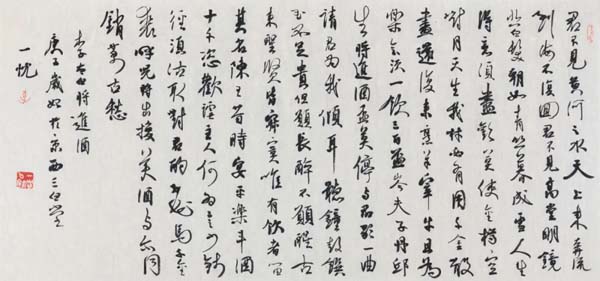 君不見黃河之水天上來奔流
到海不復回君不見高堂明鏡
悲白髮朝如青絲暮成雪人生
得意須盡歡莫使金樽空
對月天生我材必有用千金散
盡還復來烹羊宰牛且為
樂會須一飲三百盃岑夫子丹邱
生將進酒盃莫停與君歌一曲
請君為我傾耳聽鐘鼓饌
玉不足貴但願長醉不願醒古
來聖賢皆寂寞唯有飲者留
其名陳王昔時宴平樂斗酒
十千恣歡謔主人何為言少錢
徑須沽取對君酌五花馬千金
裘呼兒將出換美酒與爾同
銷萬古愁
李太白將進酒
歲於京西三白堂
一忱